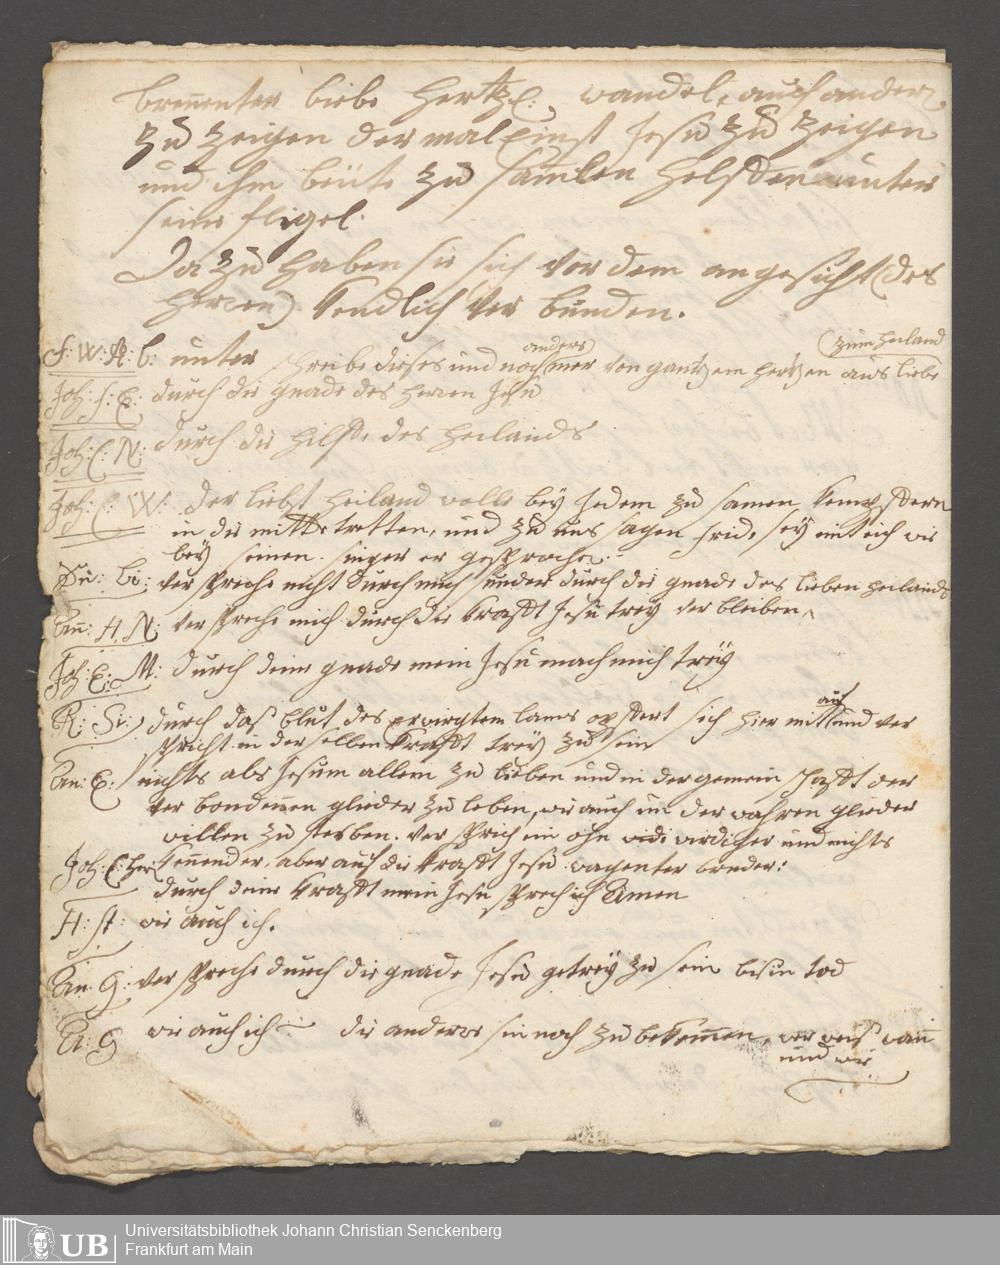 brennenter liebe hertzl: wandel, auch andern
zu zeigen der mal einst Jesu zu zeigen
und ihm beute zu samlen helffen unter
seine fligel.
Dazu haben sie sich vor dem angesicht des
Herren kendlich ver bunden.
F: W: A: C: unter schreibe dieses und noch anders mer von gantzem hertzen aus liebe zum heiland
Joh: f: E: durch die gnade des herren Jesu
Joh: C: N: durch die hilffe des heilands
Joh: C: W: der liebst heiland wolle bey jedem zu samen
in die mitte tretten, und zu uns sagen frid, sey mit eich wie
bey seinen jinger er gesprochen.
Li: ver spreche nicht durch mich sunder durch die gnade des lieben heilands
An: H. N: ver spreche mich durch die krafft Jesu trey ver bleiben
Joh: E: M: durch deine gnade mein Jesu mach mich trey
R: Si: durch das blut des erwirgten lams opffert sich hier mitt auf und ver
spricht in der selben krafft trey zu sein
An: E: nichts als Jesum allein zu lieben und in der gemein schafft der
ver bondenen glieder zu leben, wie auch im der wahren glieder
willen zu sterben. ver sprich ein wirdiger und nichts
Joh: C: kennender. aber auf die krafft Jesu wagenter bruder:
durch deine krafft mein Jesu sprech ich Amen
H: St: wie auch ich.
An: G: ver spreche durch die gnade Jesu getrey zu sein bis in tod
G wie auch ich — die andere sin noch zu bekommen, wer weis wan
und wie
Universitätsbibliothek Johann Christian Senckenberg
Frankfurt am Main
UB